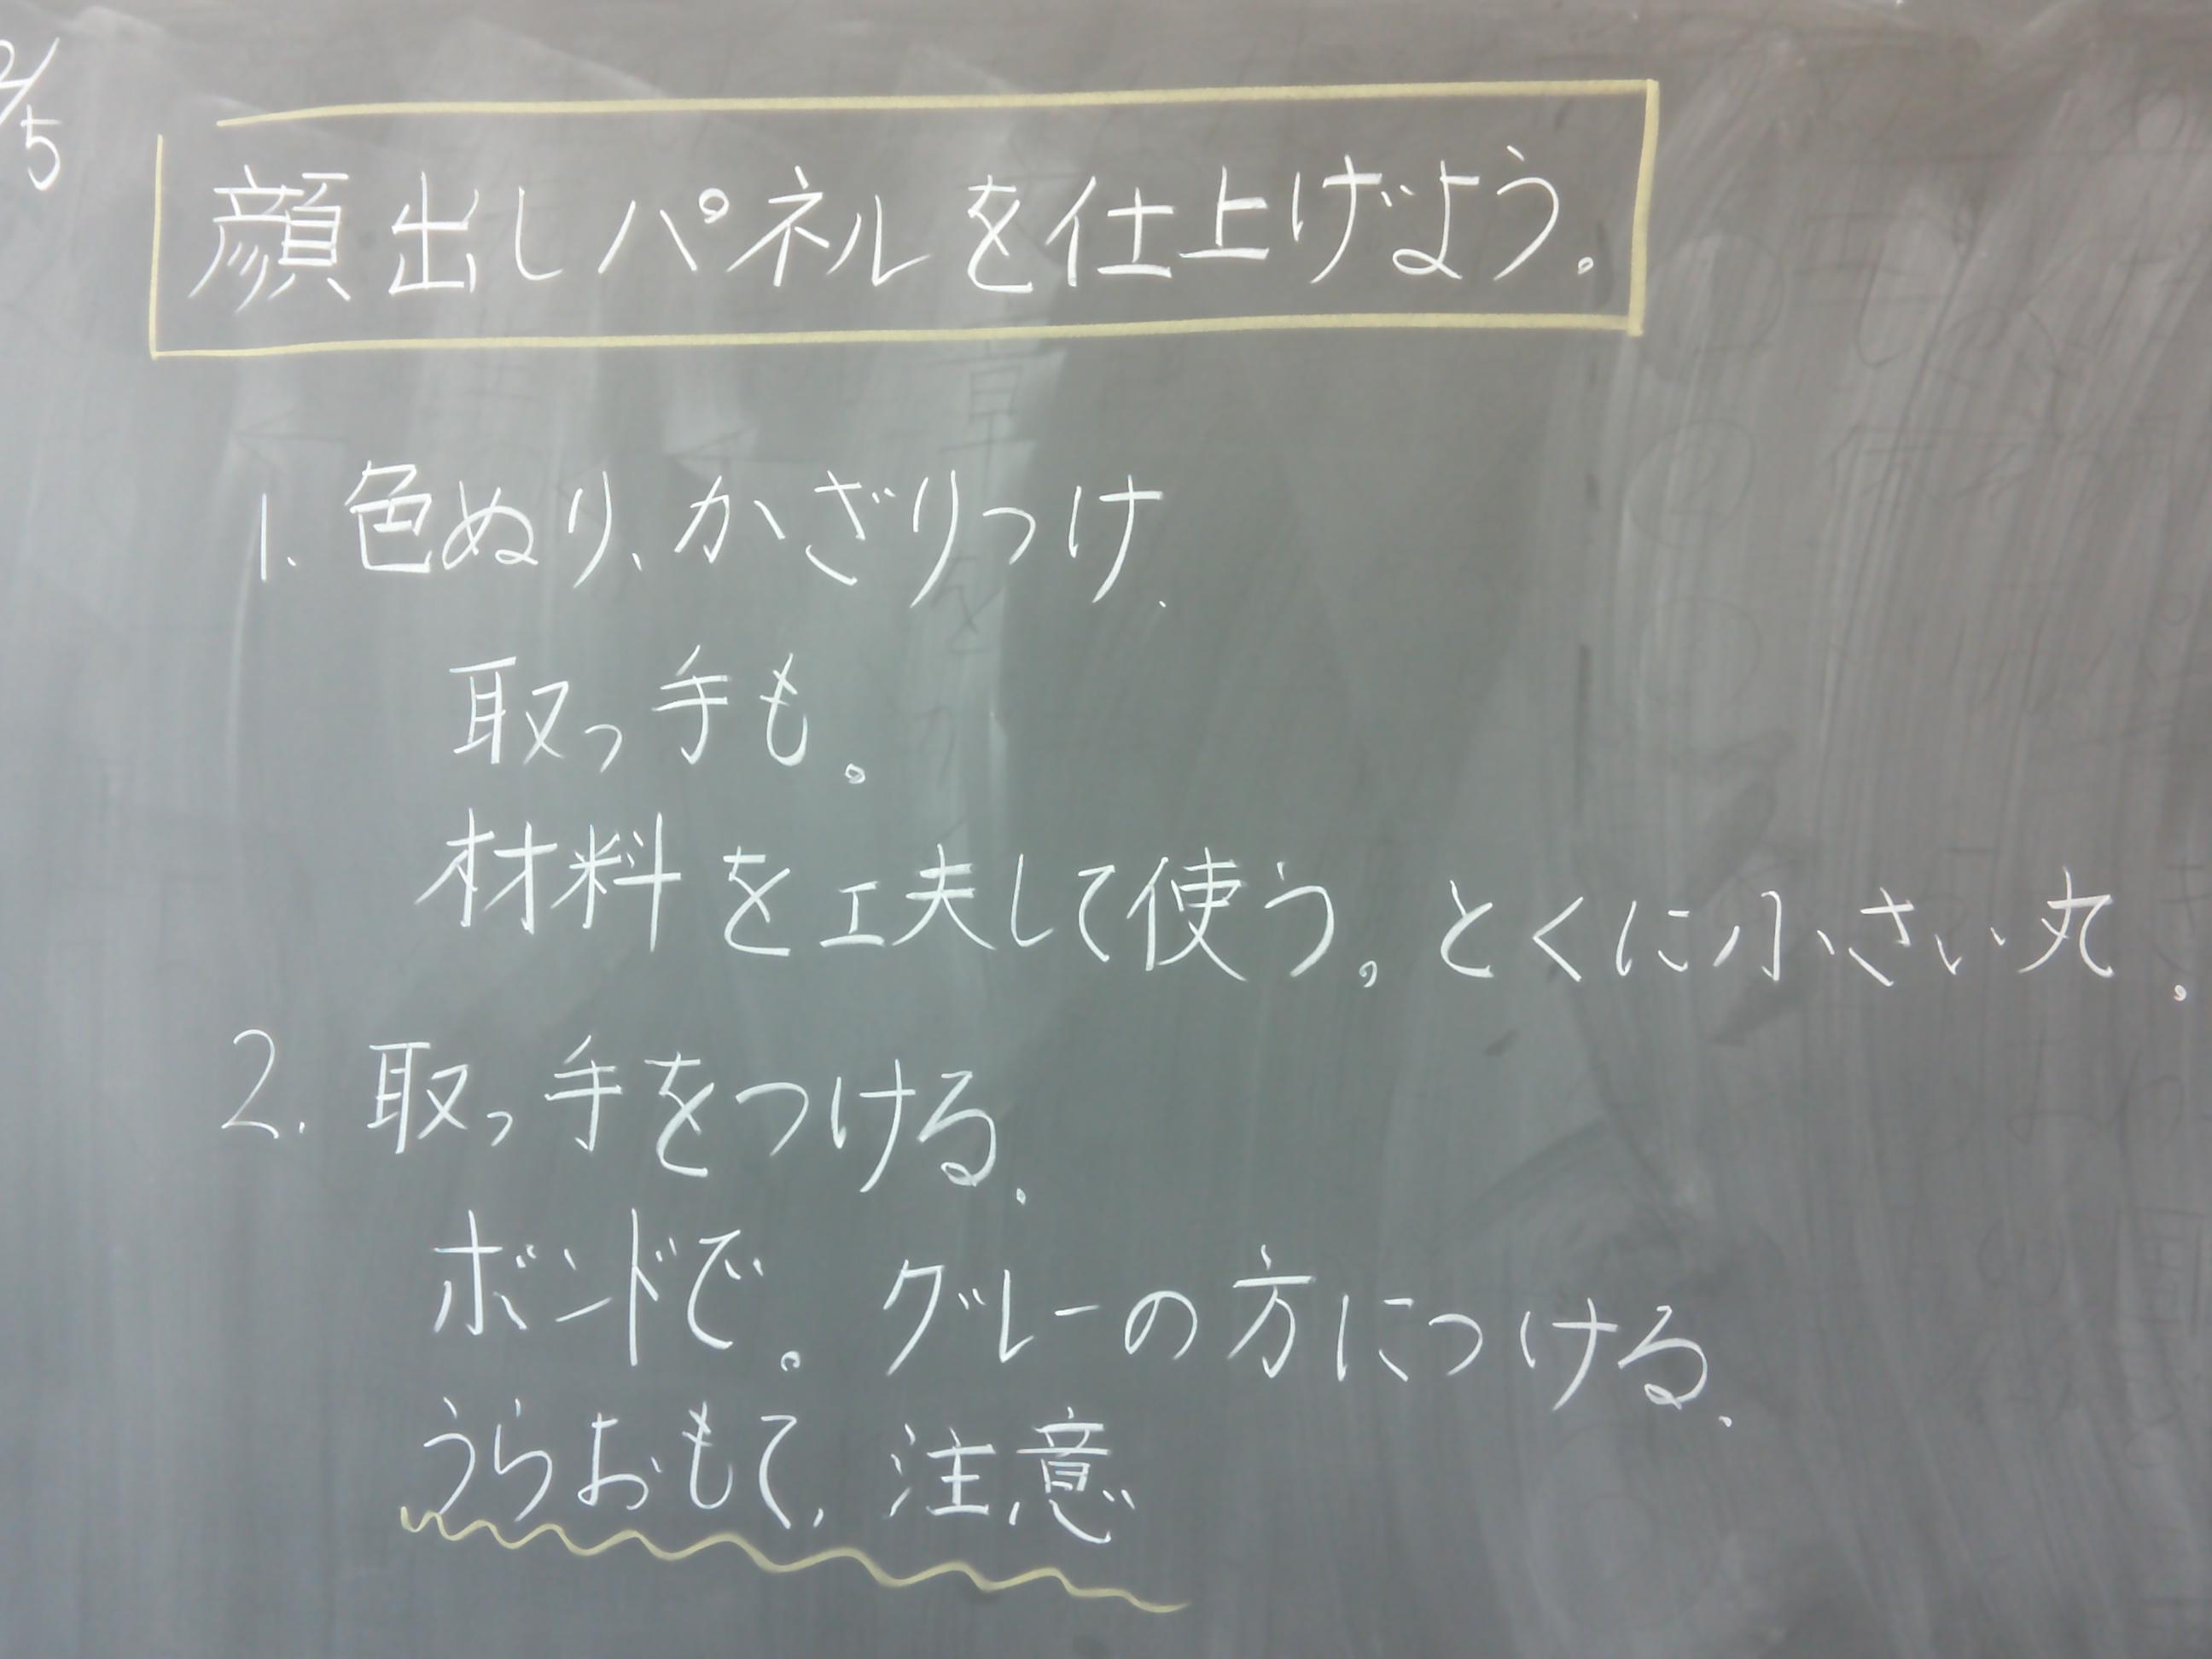 2/5
顔出しパネルを仕上げよう。
1. 色ぬり、かざりつけ.
取っ手も。
材料を工夫して使う。とくに小さい丸。
2. 取っ手をつける.
ボンドで。グレーの方につける.
うらおもて, 注意